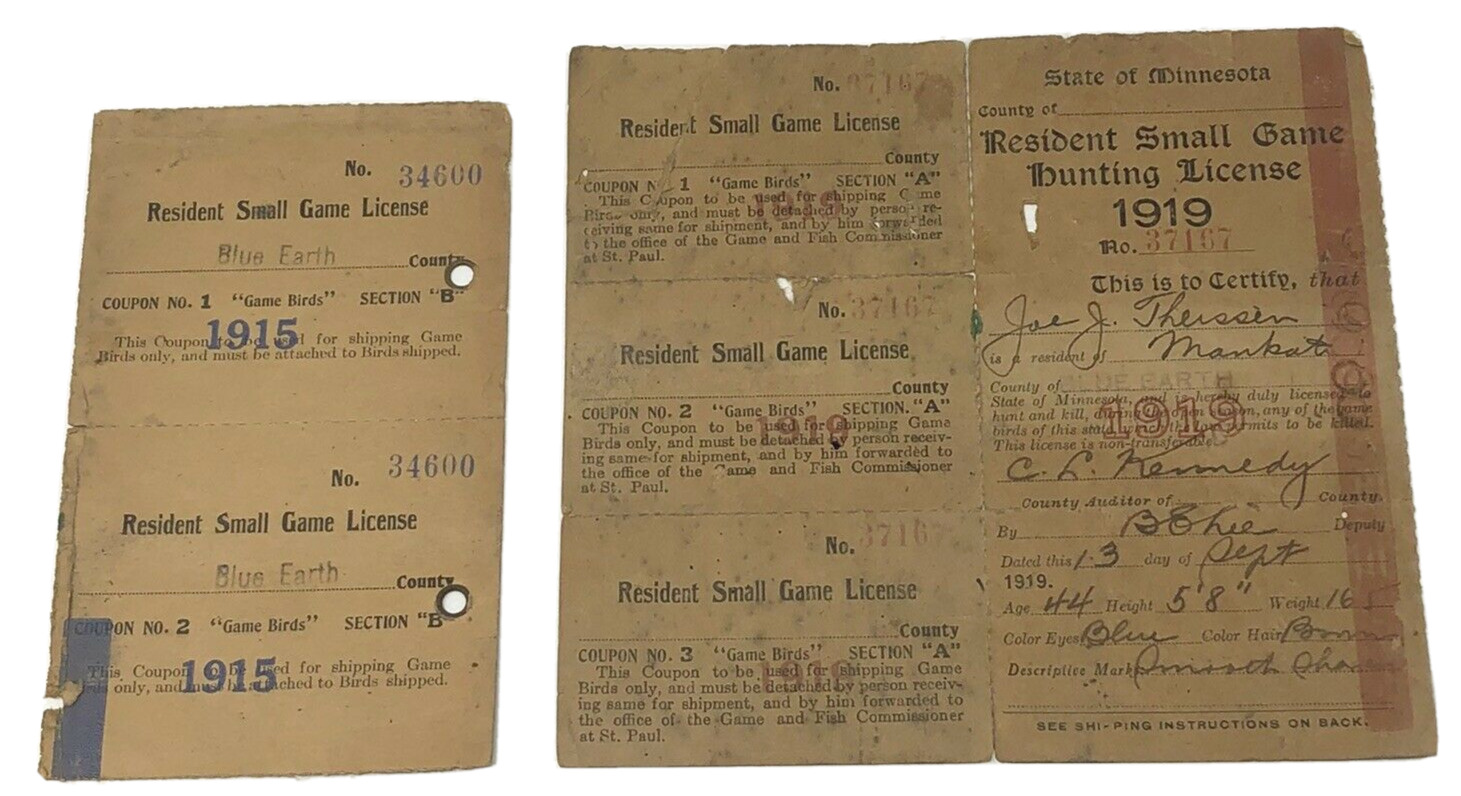 No. 34600
Resident Small Game License
Blue Earth County
COUPON NO. 1 "Game Birds" SECTION "B"
1915
This Coupon to be used for shipping Game
Birds only, and must be attached to Birds shipped.
No. 34600
Resident Small Game License
Blue Earth County
COUPON NO. 2 "Game Birds" SECTION "B"
1915
This Coupon to be used for shipping Game
Birds only, and must be attached to Birds shipped.
No. 37167
Resident Small Game License
County
COUPON NO. 1 "Game Birds" SECTION "A"
1919
This Coupon to be used for shipping Game
Birds only, and must be detached by person re-
ceiving same for shipment, and by him forwarded
to the office of the Game and Fish Commissioner
at St. Paul.
No. 37167
Resident Small Game License
County
COUPON NO. 2 "Game Birds" SECTION. "A"
1919
This Coupon to be used for shipping Game
Birds only, and must be detached by person receiv-
ing same for shipment, and by him forwarded to
the office of the Game and Fish Commissioner
at St. Paul.
No. 37167
Resident Small Game License
County
COUPON NO. 3 "Game Birds" SECTION "A"
1919
This Coupon to be used for shipping Game
Birds only, and must be detached by person receiv-
ing same for shipment, and by him forwarded to
the office of the Game and Fish Commissioner
at St. Paul.
State of Minnesota
County of
Resident Small Game
Hunting License
1919
No. 37167
This is to Certify, that
Joe J. Theissen
is a resident of Mankato
County of BLUE EARTH
State of Minnesota, and is hereby duly licensed to
hunt and kill, during the open season, any of the game
birds of this state which the law permits to be killed.
This license is non-transferable.
1919
C. L. Kennedy
County Auditor of County.
By Deputy
Dated this 13 day of Sept
1919.
Age 44 Height 5'8" Weight 165
Color Eyes Blue Color Hair Brown
Descriptive Marks Smooth
SEE SHIPPING INSTRUCTIONS ON BACK.